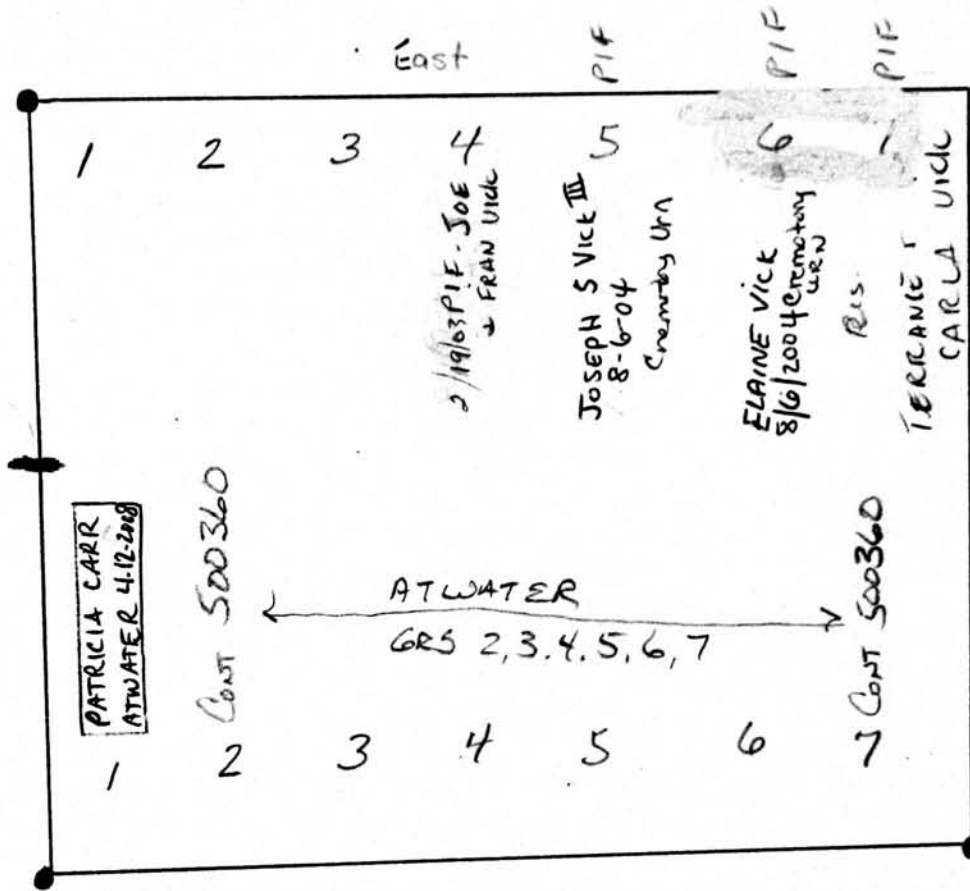 East
PIF
PIF
PIF
1
2
3
4
5
6
2/19/03 PIF - JOE
+ FRAN VICK
JOSEPH S VICK III
8-6-04
Crematory Urn
ELAINE VICK
8/6/2004 Crematory
URN
Res.
TERRANCE +
CARLA VICK
PATRICIA CARR
ATWATER 4-12-2008
CONT 500360
ATWATER
GRS 2,3.4.5,6,7
CONT 500360
1
2
3
4
5
6
7